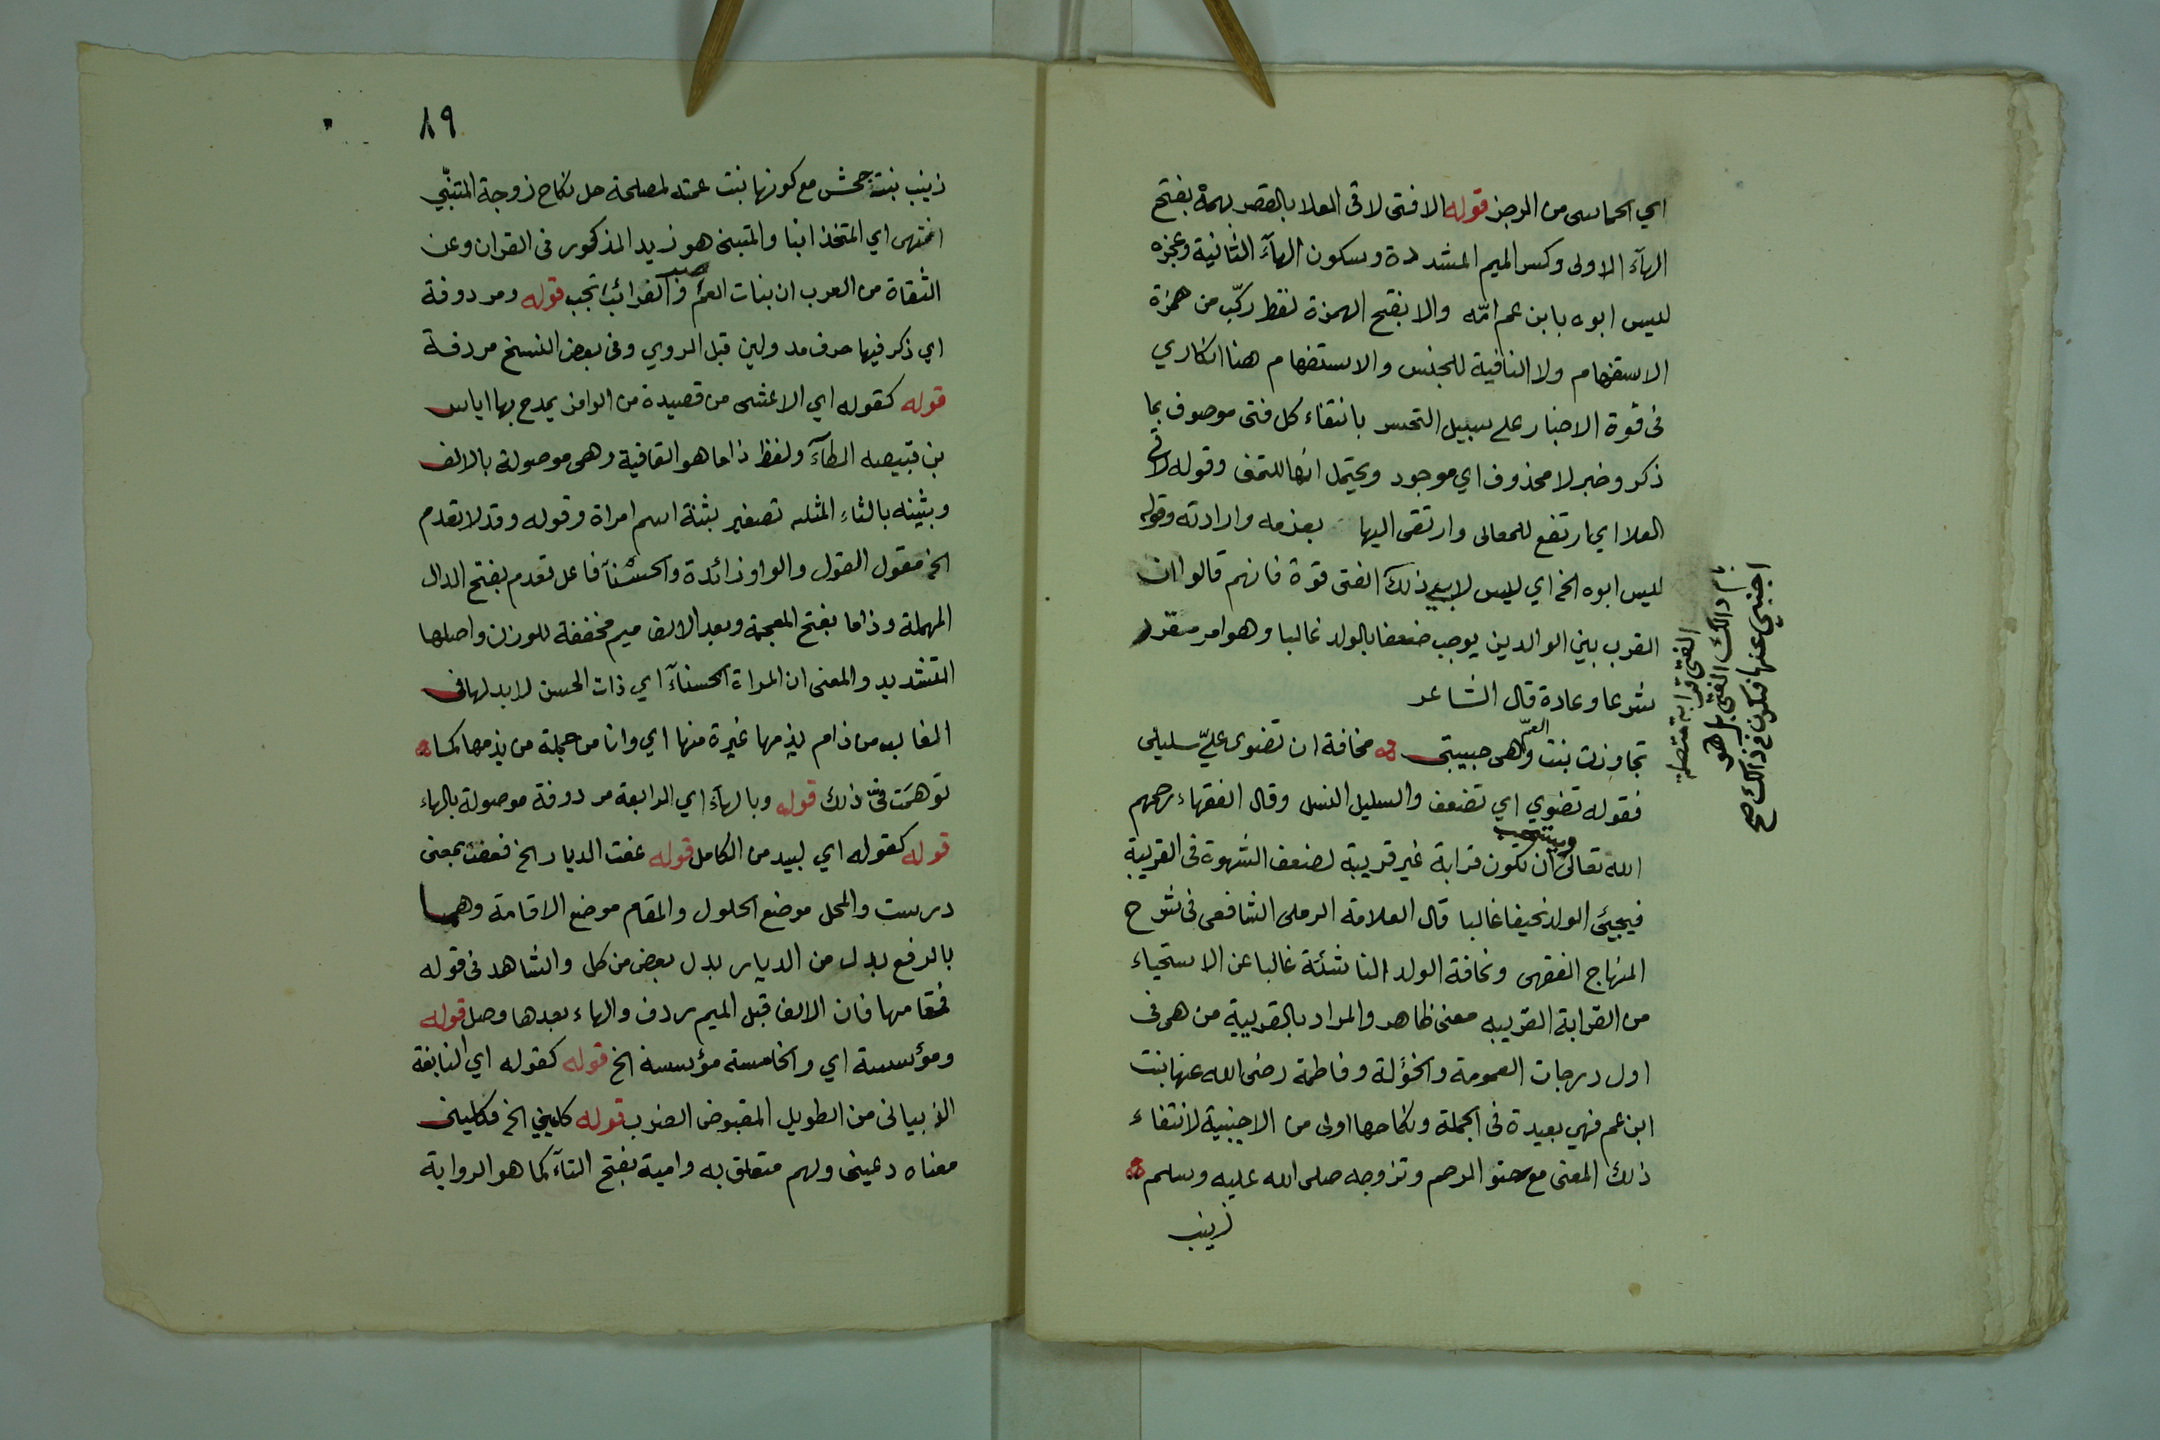 اي الحماسى من الرجز قوله الا فتى لاقى العلا بالقصر بهمة بفتح
الهآء الاولى وكسر الميم المشددة وسكون الهآء الثانية وعجزه
ليس ابوه بابن عم امّه والا بفتح الهمزة لفظ ركّب من همزة
الاستفهام ولا النافية للجنس والاستفهام هنا انكاري
فى قوة الاخبار على سبيل التحسر بانتفاء كل فتى موصوف بما
ذكر وخبر لا محذوف اي موجود ويحتمل انها للتمنى وقوله لاقى
العلا اي ارتفع للمعالى وارتقى اليها بعزمه وارادته وقوله
ليس ابوه الخ اي ليس لابي ذلك الفتى قوة فانهم قالوا ان
القرب بين الوالدين يوجب ضعفا بالولد غالبا وهو امر مقرر
شرعا وعادة قال الشاعر
تجاوزت بنت العمّ وهى حبيبتى مخافة ان تضوى عليّ سليلى
فقوله تضوي اي تضعف والسليل النسل وقال الفقهاء رحمهم
الله تعالى ويستحب ان تكون قرابة غير قريبة لضعف الشهوة فى القريبة
فيجيئ الولد نحيفا غالبا قال العلامة الرملى الشافعى فى شرح
المنهاج الفقهى ونحافة الولد الناشئة غالبا عن الاستحياء
من القرابة القريبه معنى ظاهر والمراد بالقريبة من هى فى
اول درجات العمومة والخؤلة وفاطمة رضى الله عنها بنت
ابن عم فهي بعيدة فى الجملة ونكاحها اولى من الاجنبية لانتفاء
ذلك المعنى مع حنو الرحم وتزوجه صلى الله عليه وسلم
زينب
الفتى قرابة متصلة
ذالك الفتى بل هو
اجنبي عنها فيكون فى ذالك صح
٨٩
زينب بنت جحش مع كونها بنت عمته لمصلحة حل نكاح زوجة المتبنّي
انتهى اي المتخذ ابنا والمتبنى هو زيد المذكور فى القران وعن
الثقاة من العرب ان بنات العم وٱلغرائب انجب قوله ومردوفة
اي ذكر فيها حرف مد ولين قبل الروي وفى بعض النسخ مردفة
قوله كقوله اي الاعشى من قصيدة من الوافر يمدح بها اياس
بن قبيصه الطآء ولفظ ذاما هو القافية وهى موصولة بالالف
وبثينه بالثاء المثلثه تصغير بثنة اسم امراة وقوله وقد لا تقدم
الخ مقول القول والواو زائدة والحسْنآ فاعل تقدم بفتح الدال
المهملة وذاما بفتح المعجمة وبعد الالف ميم مخففة للوزن واصلها
التشديد والمعنى ان المراة الحسنآء اي ذات الحسن لا بد لها فى
الغالب من ذام يذمها غيرة منها اي وانا من جملة من يذمها كما
توهمَت فىّ ذلك قوله وبالهآء اي الرابعة مردوفة موصولة بالهاء
قوله كقوله اي لبيد من الكامل قوله عفت الديار الخ فعفت بمعنى
درست والمحل موضع الحلول والمقام موضع الاقامة وهما
بالرفع بدل من الديار بدل بعض من كل والشاهد فى قوله
فمقامها فان الالف قبل الميم ردف والهاء بعدها وصل قوله
ومؤسسة اي والخامسة مؤسسة الخ قوله كقوله اي النابغة
الذبيانى من الطويل المقبوض الضرب قوله كليني الخ فكلينى
معناه دعينى ولهم متعلق به واميمة بفتح التآء كما هو الرواية